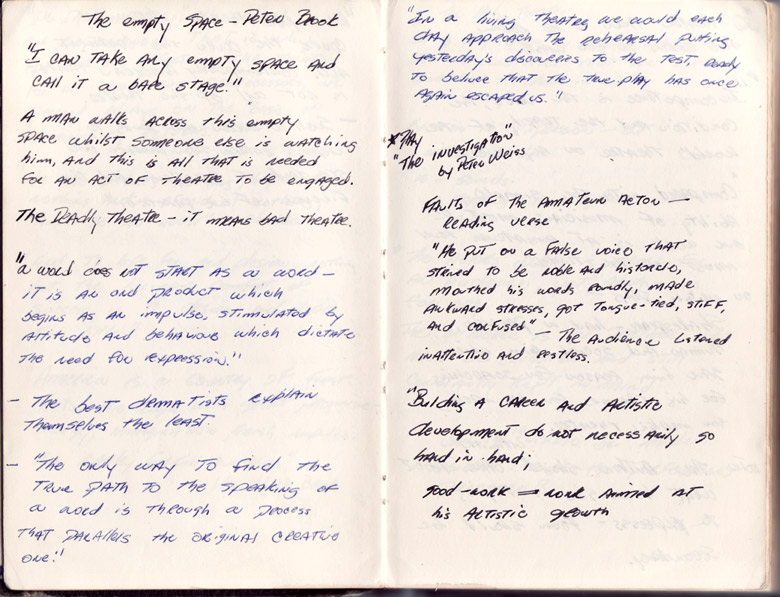 The empty Space - Peter Brook
"I can take any empty space and
call it a bare stage."
A man walks across this empty
space whilst someone else is watching
him, and this is all that is needed
for an act of theatre to be engaged.
The Deadly Theatre - it means bad theatre.
"a word does not start as a word -
it is an end product which
begins as an impulse, stimulated by
attitude and behaviour which dictate
the need for expression."
- The best dramatists explain
themselves the least.
- "The only way to find the
true path to the speaking of
a word is through a process
that parallels the original creative
one."
"In a living theatre, we would each
day approach the rehearsal putting
yesterday's discoveries to the test, ready
to believe that the true play has once
again escaped us."
* Play
"The investigation"
by Peter Weiss
Faults of the Amateur Actor -
reading verse
"He put on a false voice that
strived to be noble and historic,
mouthed his words roundly, made
awkward stresses, got tongue-tied, stiff,
and confused" - The audience listened
inattentive and restless.
"Building a career and artistic
development do not necessarily go
hand in hand;
good-work = work aimed at
his artistic growth